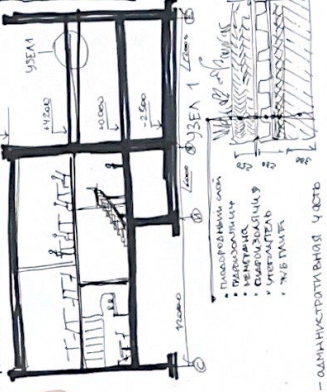 УЗЕЛ 1
+4.500
±0.000
-2.500
6000
6000
12000
УЗЕЛ 1
• ПЛОДОРОДНЫЙ СЛОЙ
• ГИДРОИЗОЛЯЦИЯ
• МЕМБРАНА
• ГИДРОИЗОЛЯЦИЯ
• УТЕПЛИТЕЛЬ
• Ж/Б ПЛИТА
АДМИНИСТРАТИВНАЯ ЧАСТЬ